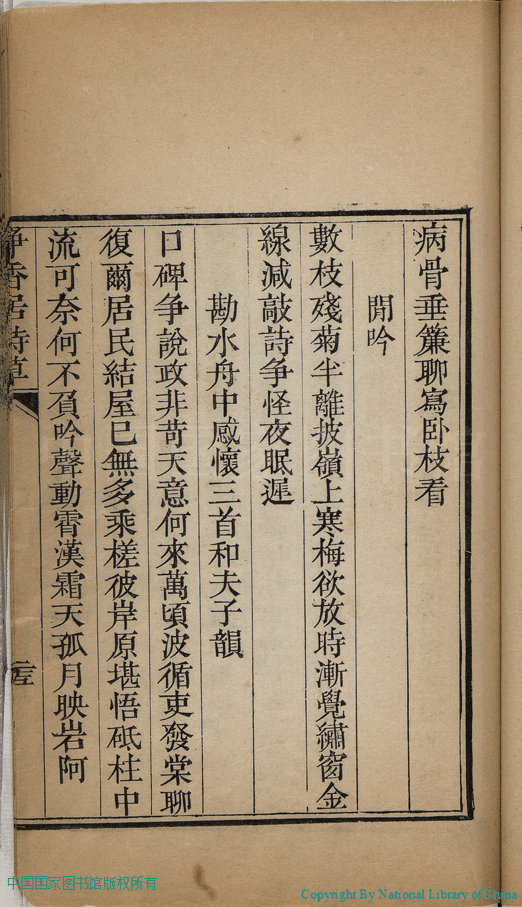 病骨垂簾聊寫卧枝看
閒吟
數枝殘菊半離披嶺上寒梅欲放時漸覺繡窗金
線減敲詩争怪夜眠遲
勘水舟中感懷三首和夫子韻
口碑争說政非苛天意何來萬頃波循吏發棠聊
復爾居民結屋已無多乘槎彼岸原堪悟砥柱中
流可奈何不負吟聲動霄漢霜天孤月映岩阿
淨香居詩草
中国国家图书馆版权所有
Copyright By National Library of China